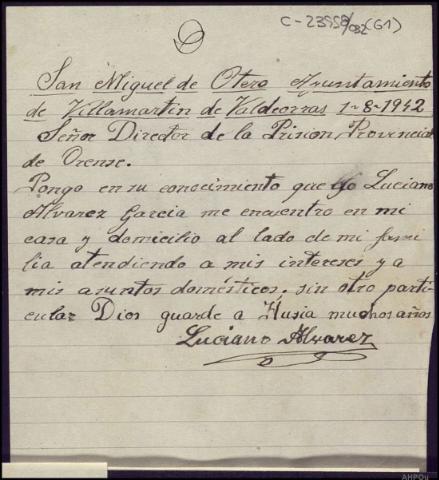 C-23558/082 (G1)
San Miguel de Otero Ayuntamiento
de Villamartin de Valdeorras 1-8-1942
Señor Director de la Prision Provincial
de Orense.
Pongo en su conocimiento que yo Luciano
Alvarez Garcia me encuentro en mi
casa y domicilio al lado de mi fami
lia atendiendo a mis intereses y a
mis asuntos domésticos, sin otro parti-
cular Dios guarde a Husia muchos años
Luciano Alvarez
AHPOu